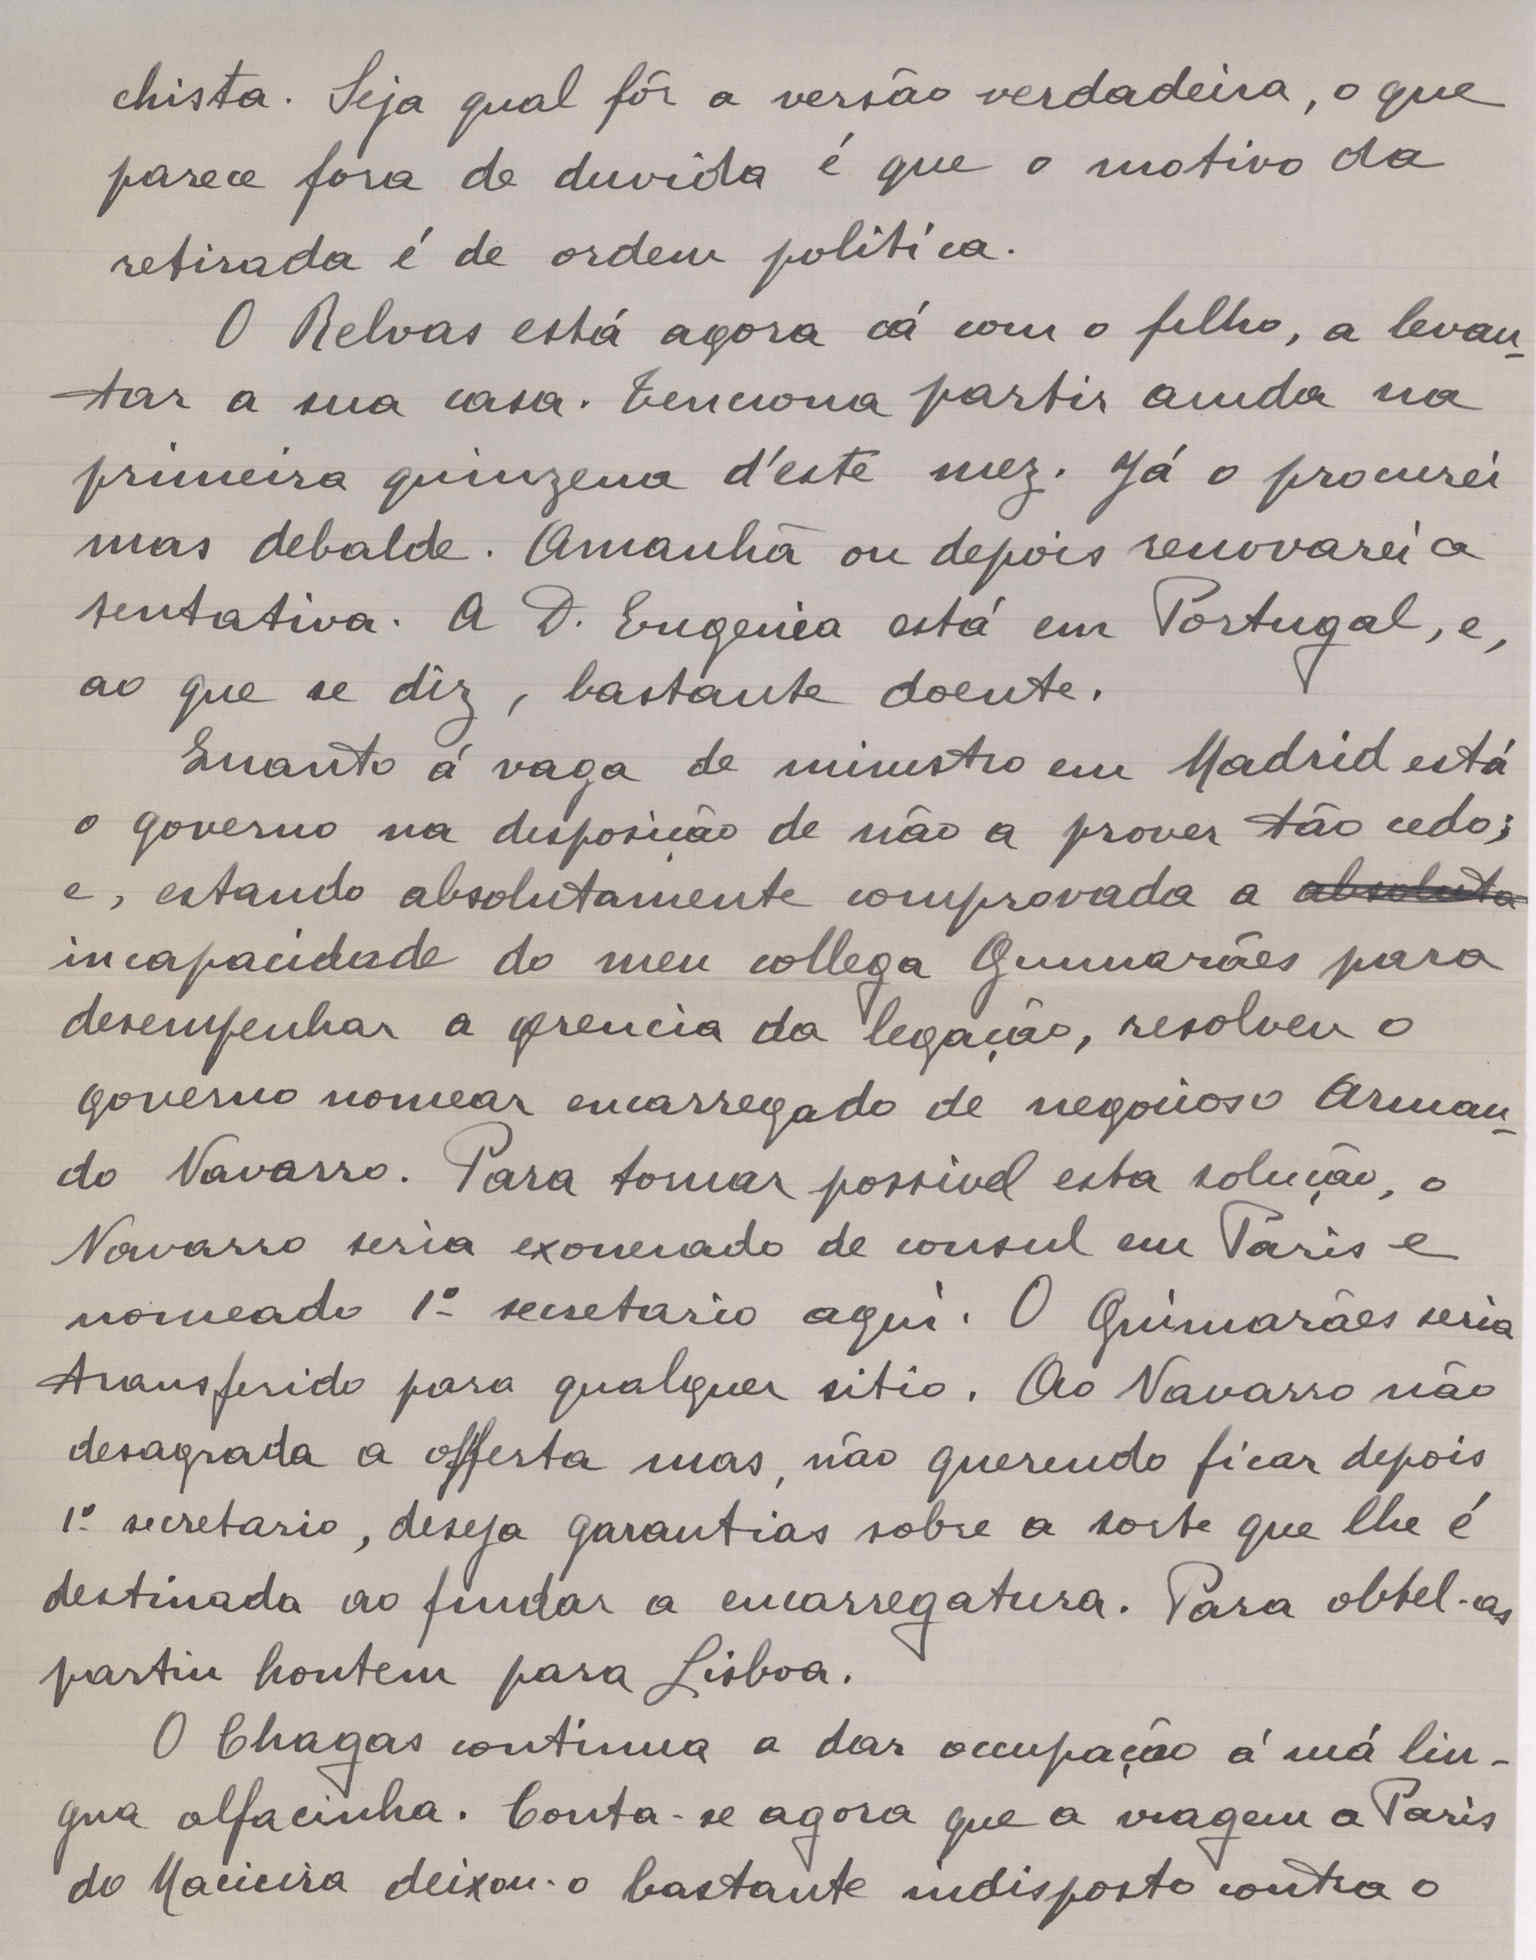 chista. Seja qual fôr a versão verdadeira, o que
parece fora de duvida é que o motivo da
retirada é de ordem politica.
O Relvas está agora cá com o filho, a levan-
tar a sua casa. Tenciona partir ainda na
primeira quinzena d'este mez. Já o procurei
mas debalde. Amanhã ou depois renovarei a
tentativa. A D. Eugenia está em Portugal, e,
ao que se diz, bastante doente.
Quanto á vaga de ministro em Madrid está
o governo na disposição de não a prover tão cedo;
e, estando absolutamente comprovada a absoluta
incapacidade do meu collega Guimarães para
desempenhar a gerencia da legação, resolveu o
governo nomear encarregado de negocios o Arman-
do Navarro. Para tornar possivel esta solução, o
Navarro seria exonerado de consul em Paris e
nomeado 1º secretario aqui. O Guimarães seria
transferido para qualquer sitio. Ao Navarro não
desagrada a offerta mas, não querendo ficar depois
1º secretario, deseja garantias sobre a sorte que lhe é
destinada ao findar a encarregatura. Para obtel-as
partiu hontem para Lisboa.
O Chagas continua a dar occupação á má lin-
gua alfacinha. Conta-se agora que a viagem a Paris
do Macieira deixou-o bastante indisposto contra o